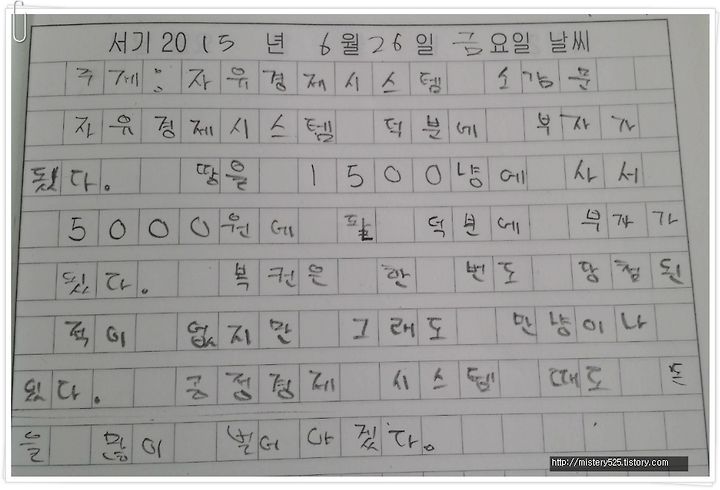 서기 2015 년 6월 26일 금요일 날씨
주제: 자유경제시스템 소감문
자유경제시스템 덕분에 부자가
됬다. 땅을 1500냥에 사서
5000원에 판 덕분에 부자가
됬다. 복권은 한 번도 당첨된
적이 없지만 그래도 만냥이나
됬다. 공정경제 시스템 때도 돈
을 많이 벌어야 겠다.
http://mistery525.tistory.com